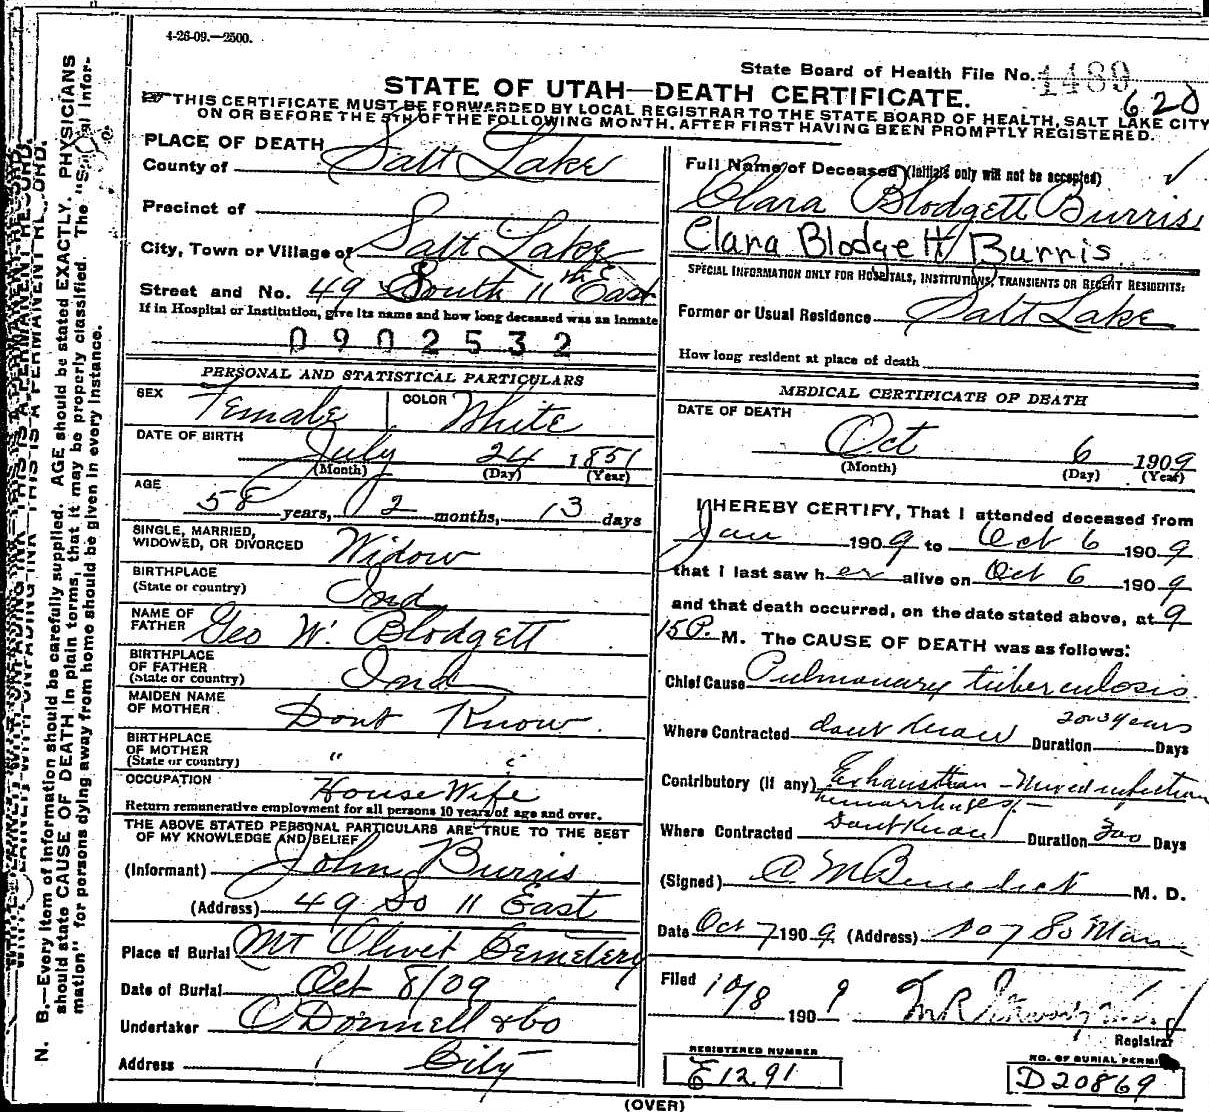 4-26-09.—2500.
State Board of Health File No. 1489
620
STATE OF UTAH—DEATH CERTIFICATE.
THIS CERTIFICATE MUST BE FORWARDED BY LOCAL REGISTRAR TO THE STATE BOARD OF HEALTH, SALT LAKE CITY
ON OR BEFORE THE 5TH OF THE FOLLOWING MONTH, AFTER FIRST HAVING BEEN PROMPTLY REGISTERED.
PLACE OF DEATH
County of Salt Lake
Precinct of
City, Town or Village of Salt Lake
Street and No. 49 South 11th East
If in Hospital or Institution, give its name and how long deceased was an inmate
0902532
PERSONAL AND STATISTICAL PARTICULARS
SEX Female COLOR White
DATE OF BIRTH July 24 1851
(Month) (Day) (Year)
AGE
58 years, 2 months, 13 days
SINGLE, MARRIED,
WIDOWED, OR DIVORCED Widow
BIRTHPLACE
(State or country) Ind
NAME OF
FATHER Geo W. Blodgett
BIRTHPLACE
OF FATHER
(State or country) Ind
MAIDEN NAME
OF MOTHER Dont Know
BIRTHPLACE
OF MOTHER
(State or country) " "
OCCUPATION House Wife
Return remunerative employment for all persons 10 years of age and over.
THE ABOVE STATED PERSONAL PARTICULARS ARE TRUE TO THE BEST
OF MY KNOWLEDGE AND BELIEF
(Informant) John Burris
(Address) 49 So 11 East
Place of Burial Mt Olivet Cemetery
Date of Burial Oct 8/09
Undertaker O Donnell & Co
Address City
Full Name of Deceased (Initials only will not be accepted)
Clara Blodgett Burris
Clara Blodgett Burris
SPECIAL INFORMATION ONLY FOR HOSPITALS, INSTITUTIONS, TRANSIENTS OR RECENT RESIDENTS:
Former or Usual Residence Salt Lake
How long resident at place of death
MEDICAL CERTIFICATE OF DEATH
DATE OF DEATH
Oct 6 1909
(Month) (Day) (Year)
I HEREBY CERTIFY, That I attended deceased from
Jan 1909 to Oct 6 1909
that I last saw her alive on Oct 6 1909
and that death occurred, on the date stated above, at 9
15 P. M. The CAUSE OF DEATH was as follows:
Chief Cause Pulmonary tuberculosis
2 or 3 years
Where Contracted dont know Duration Days
Contributory (if any) Exhaustion - Mixed infection
hemorrhages -
Where Contracted Dont Know Duration 300 Days
(Signed) C M Benedict M. D.
Date Oct 7 1909 (Address) So Main
Filed 10/8 1909
Registrar
REGISTERED NUMBER
E 1291
NO. OF BURIAL PERMIT
D20869
(OVER)
N. B.—Every item of information should be carefully supplied. AGE should be stated EXACTLY. PHYSICIANS
should state CAUSE OF DEATH in plain terms, that it may be properly classified. The "Special Infor-
mation" for persons dying away from home should be given in every instance.